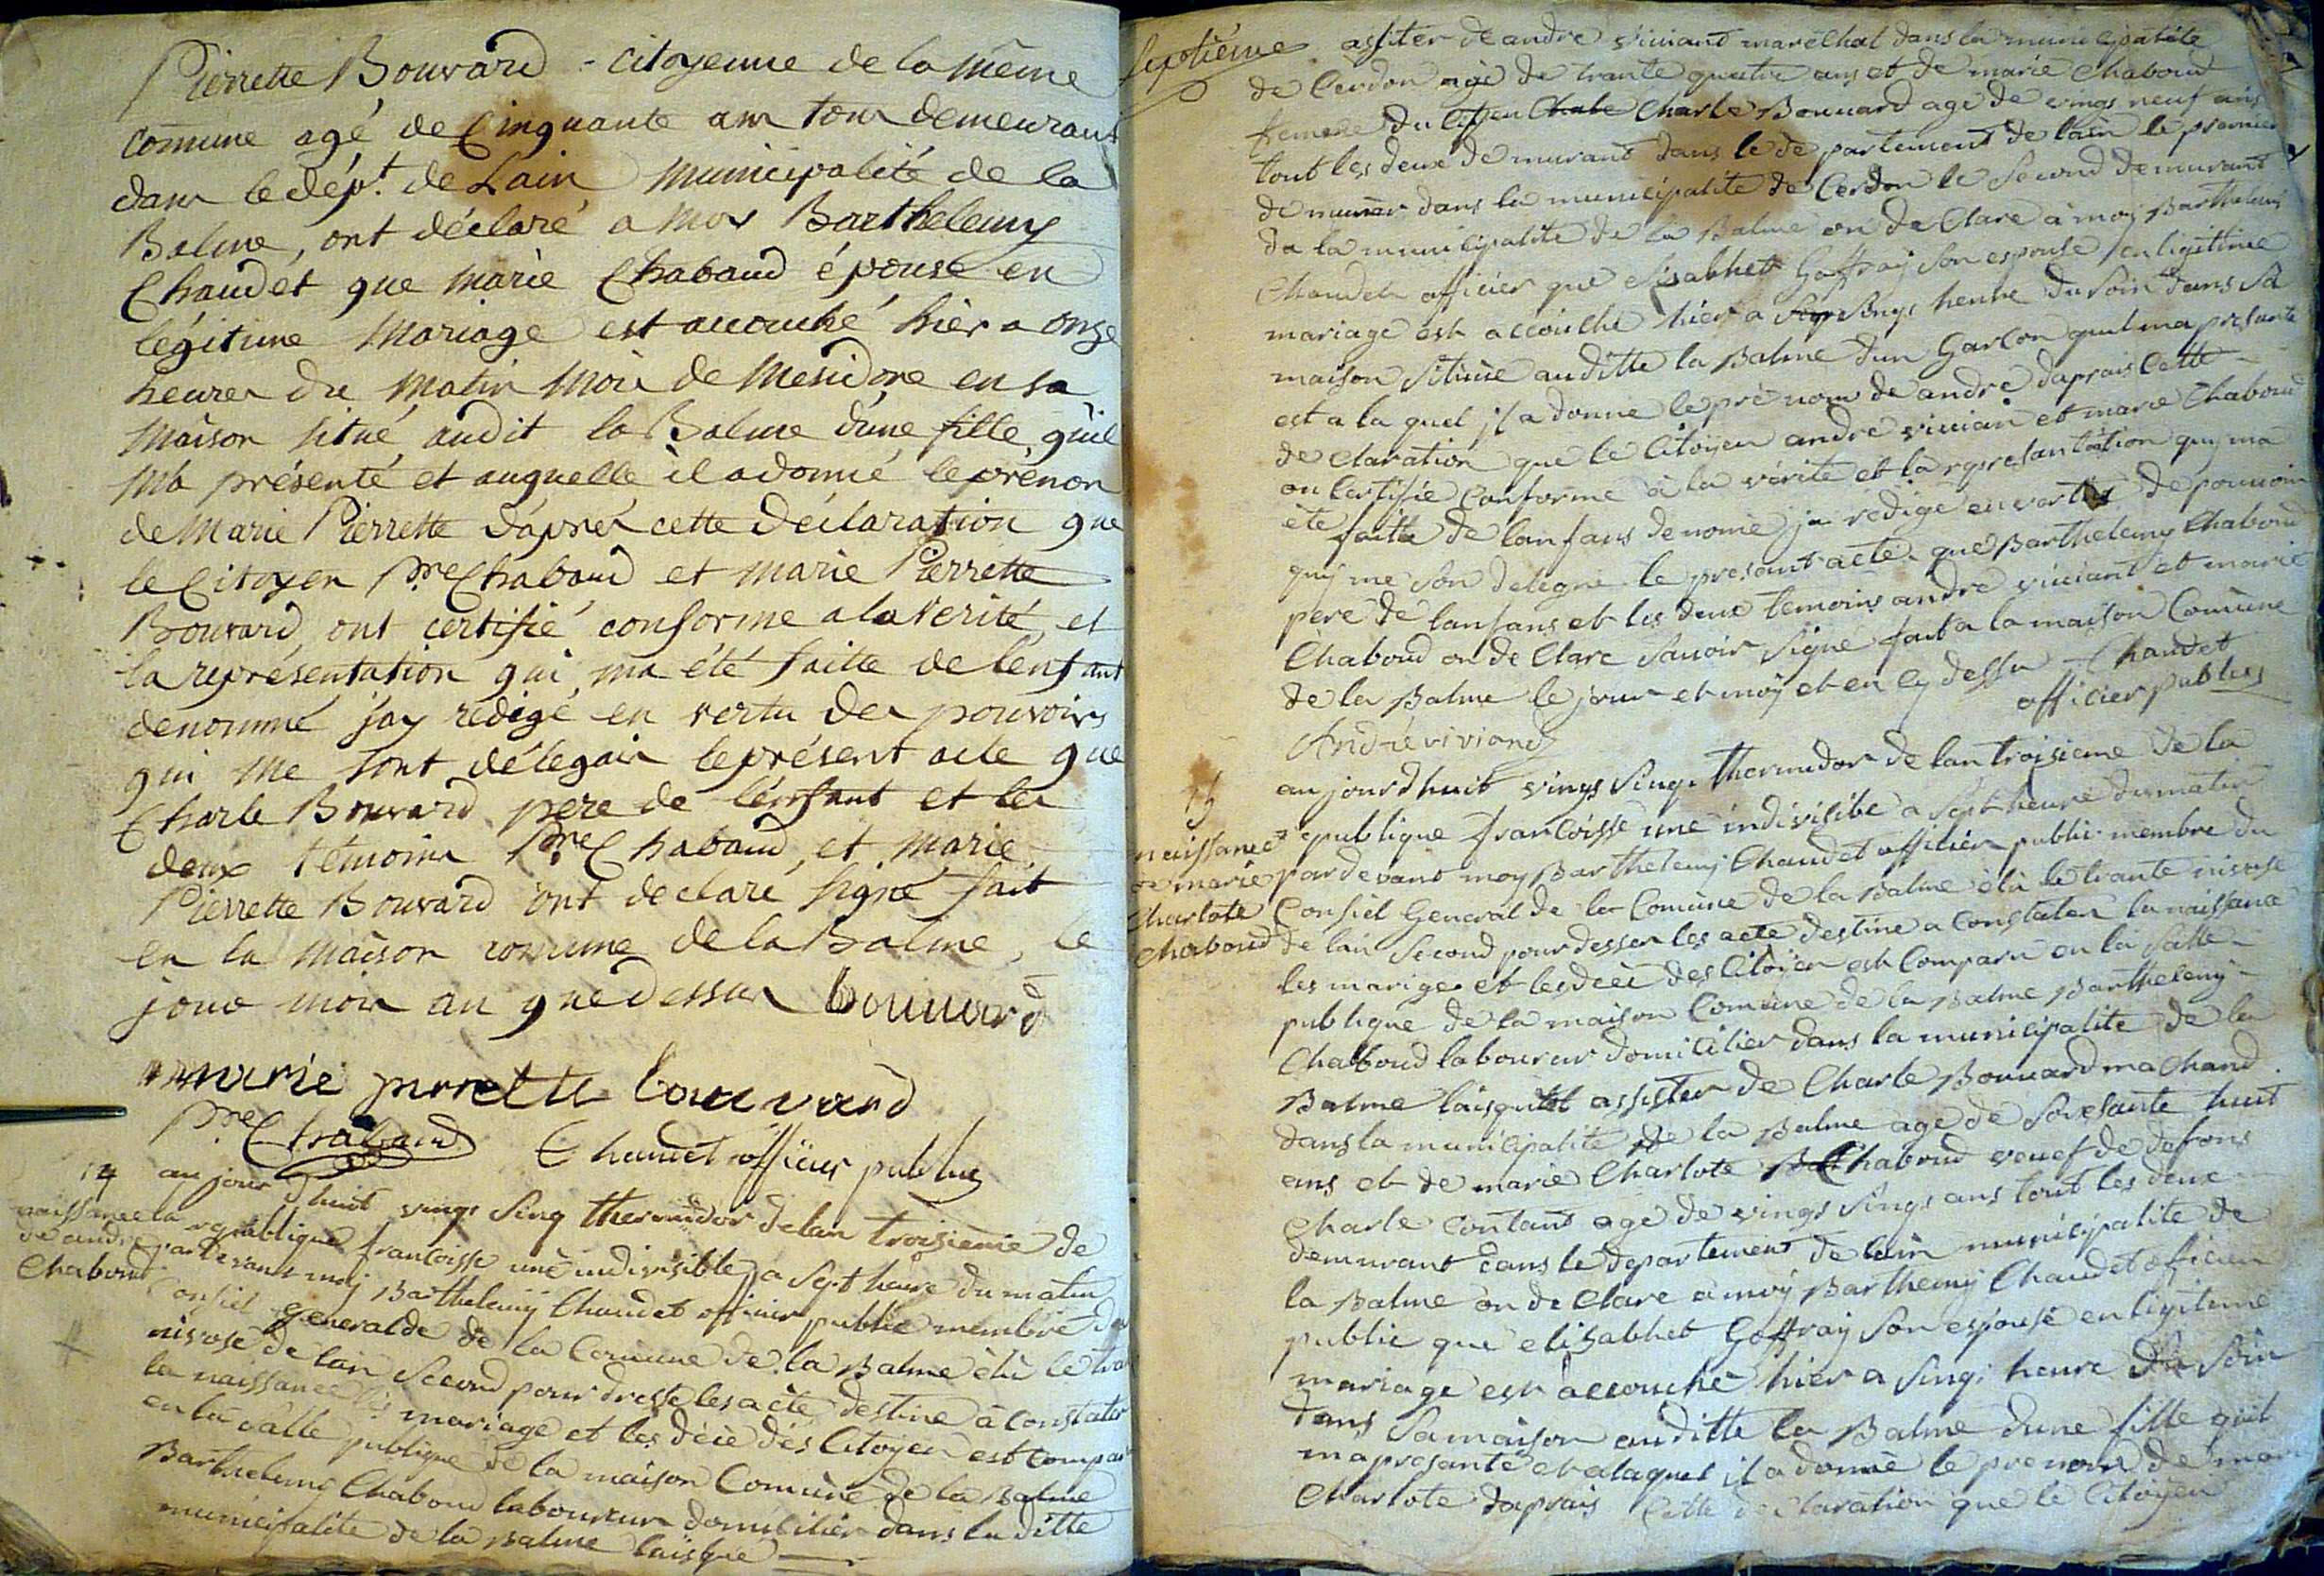 Pierrette Bouvard - citoyenne de la même
comune agé de Cinquante ans tous demeurant
dans le dépt. de Lain municipalité de la
Balme, ont déclaré a moy Barthelemy
Chaudet que marie Chaboud épouse en
légitime mariage est accouché hier a onze
heures du matin mois de Mesidore en sa
maison situé audit la Balme d'une fille quil
ma présenté et auquelle il a donné le prénon
de Marie Pierrette d'aprés cette déclaration que
le Citoyen Pre Chaboud et marie Pierrette
Bouvard, ont certifié conforme a la Verité et
la représentation qui ma été faitte de l'enfant
denommé j'ay redigé en vertu des pouvoirs
qui me sont délegair le présent acte que
Charle Bouvard pere de l'enfant et les
deux témoins Pre Chaboud, et marie
Pierrette Bouvard ont declaré signé fait
en la maison comune de la Balme, le
jour mois an que dessus bouuard
marie pierrette bouuard
Pre Chaboud Chaudet officier publics
14 aujourdhuit vings sinq thermidor de lan troisieme de
naissance la republique francoisse une indivisible a sept heure du matin
de andre pardevant moy Barthelemy Chaudet officier public membre du
Chaboud Consiel generalde de la Comune de la Balme élu le tra
nisose de lan second pour dresse les acte destine à constater
la naissance les mariage et les décè des Citoyen est compar
en la salle publique de la maison Comune de la Balme
Barthelemy Chaboud laboureur domicilier dans la ditte
municipalite de la Balme laisque
septieme assiter de andre viviant marechal dans la municipalite
de Cerdon agè de trante quatre ans et de marie Chaboud
femme du citoyen Chabe Charle Bouuard age de vings neuf ans
tout les deux demurant dans le departement de lain le premier
demurer dans la municipalite de Cerdon le second demurant
da la municipalite de la Balme on de Clare à moy Barthelemy
Chaudet officier que elisabhet Goffray son espouse en ligitime
mariage est accouche hier a sinq heure du soir dans sa
maison situuè auditte la Balme dun Garcon quil ma presante
est a la quel jl a donne le prénom de andre daprais cette
de claration que le Citoyen andre vivian et marie Chaboud
on certifie conforme à la vérite et la represantation quy ma
éte faitte de lanfans denomé jai rédigé en vertus de pouvoir
quy me son delegue le presant acte que Barthelemy Chaboud
pere de lanfans et les deux temoins andre viviant et marie
Chaboud on de Clare savoir signe fait a la maison Comune
de la Balme le jour et moy et en cy dessu Chaudet
officier publics
André viviand
15 aujourdhuit vings sinq thermidor de lan troisieme de la
naissance republique francoisse une indivisible a sept heure du matin
de marie pardevant moy Barthelemy Chaudet officier public membre du
Charlote Consiel General de la Comune de la Balme élu le trante nivose
Chaboud de lan second pour dresser les acte destine a constater la naissance
les mariges et les décè des Citoyen est Comparu en la salle
publique de la maison Comune de la Balme Barthelemy
Chaboud laboureur domicilier dans la municipalite de la
Balme laisquel assister de Charle Bouuard machand
dans la municipalite de la Balme age de soixsante huit
ans et de marie Charlote Chaboud veuef de defons
Charle Contant age de vings sings ans tout les deux
demurant dans le departement de lain municipalite de
la Balme on de Clare a moy Barthemy Chaudet officier
public que elisabhet Goffray son espouse en ligitime
mariage est accouché hier a sinq heure du soir
dans sa maison auditte la Balme dune fille quil
ma presante et alaquel il a donné le prenom de mari
Charlote daprais cette de claration que le Citoyen